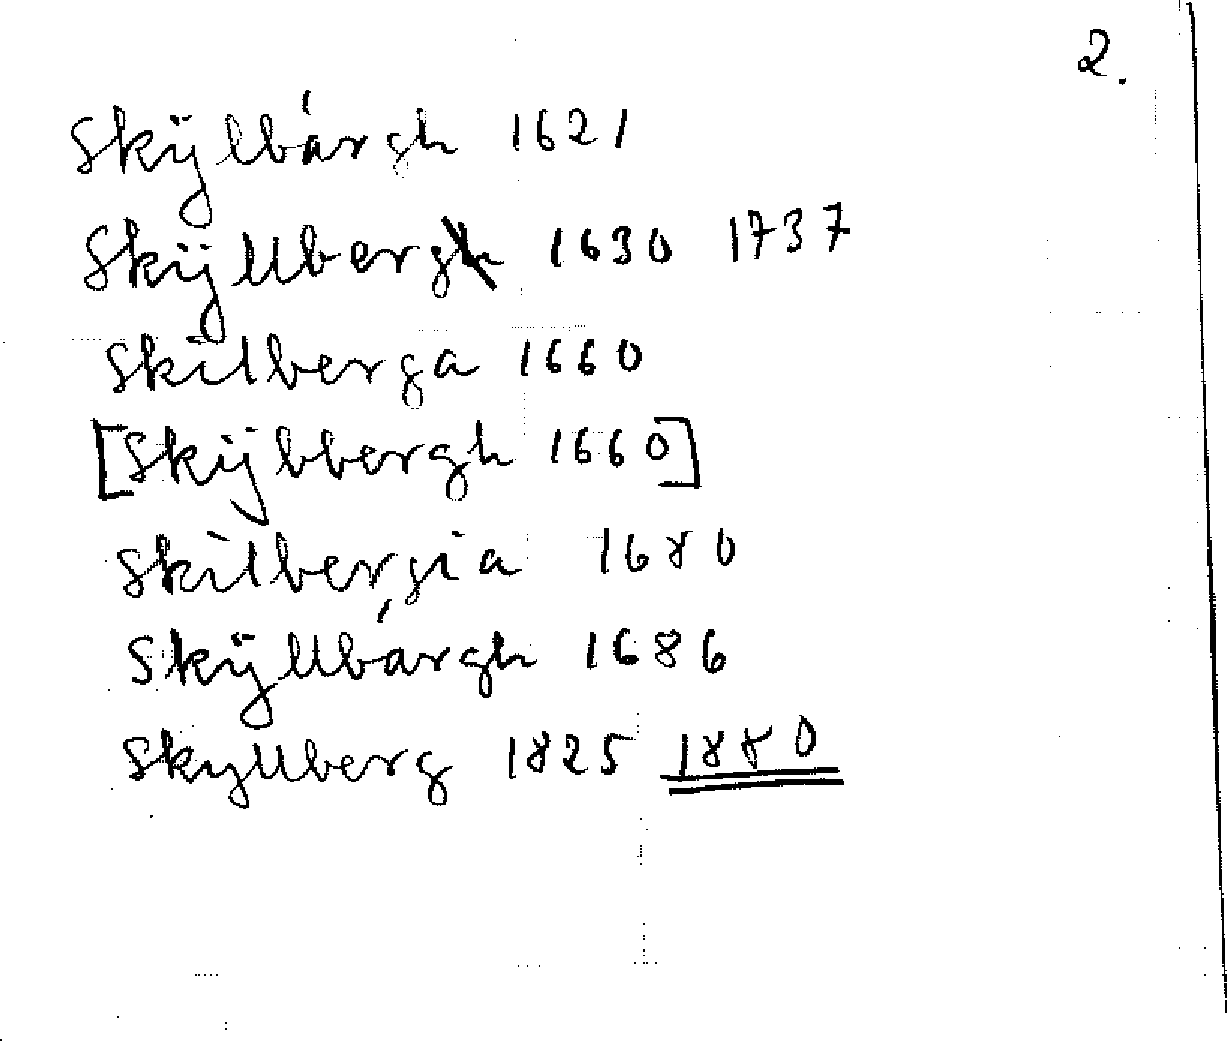 2.
Skÿlbárgh 1621
Skÿllberg 1630 1737
Skilberga 1660
[Skÿbbergh 1660]
Skilbergia 1680
Skÿllbárgh 1686
Skyllberg 1825 1880